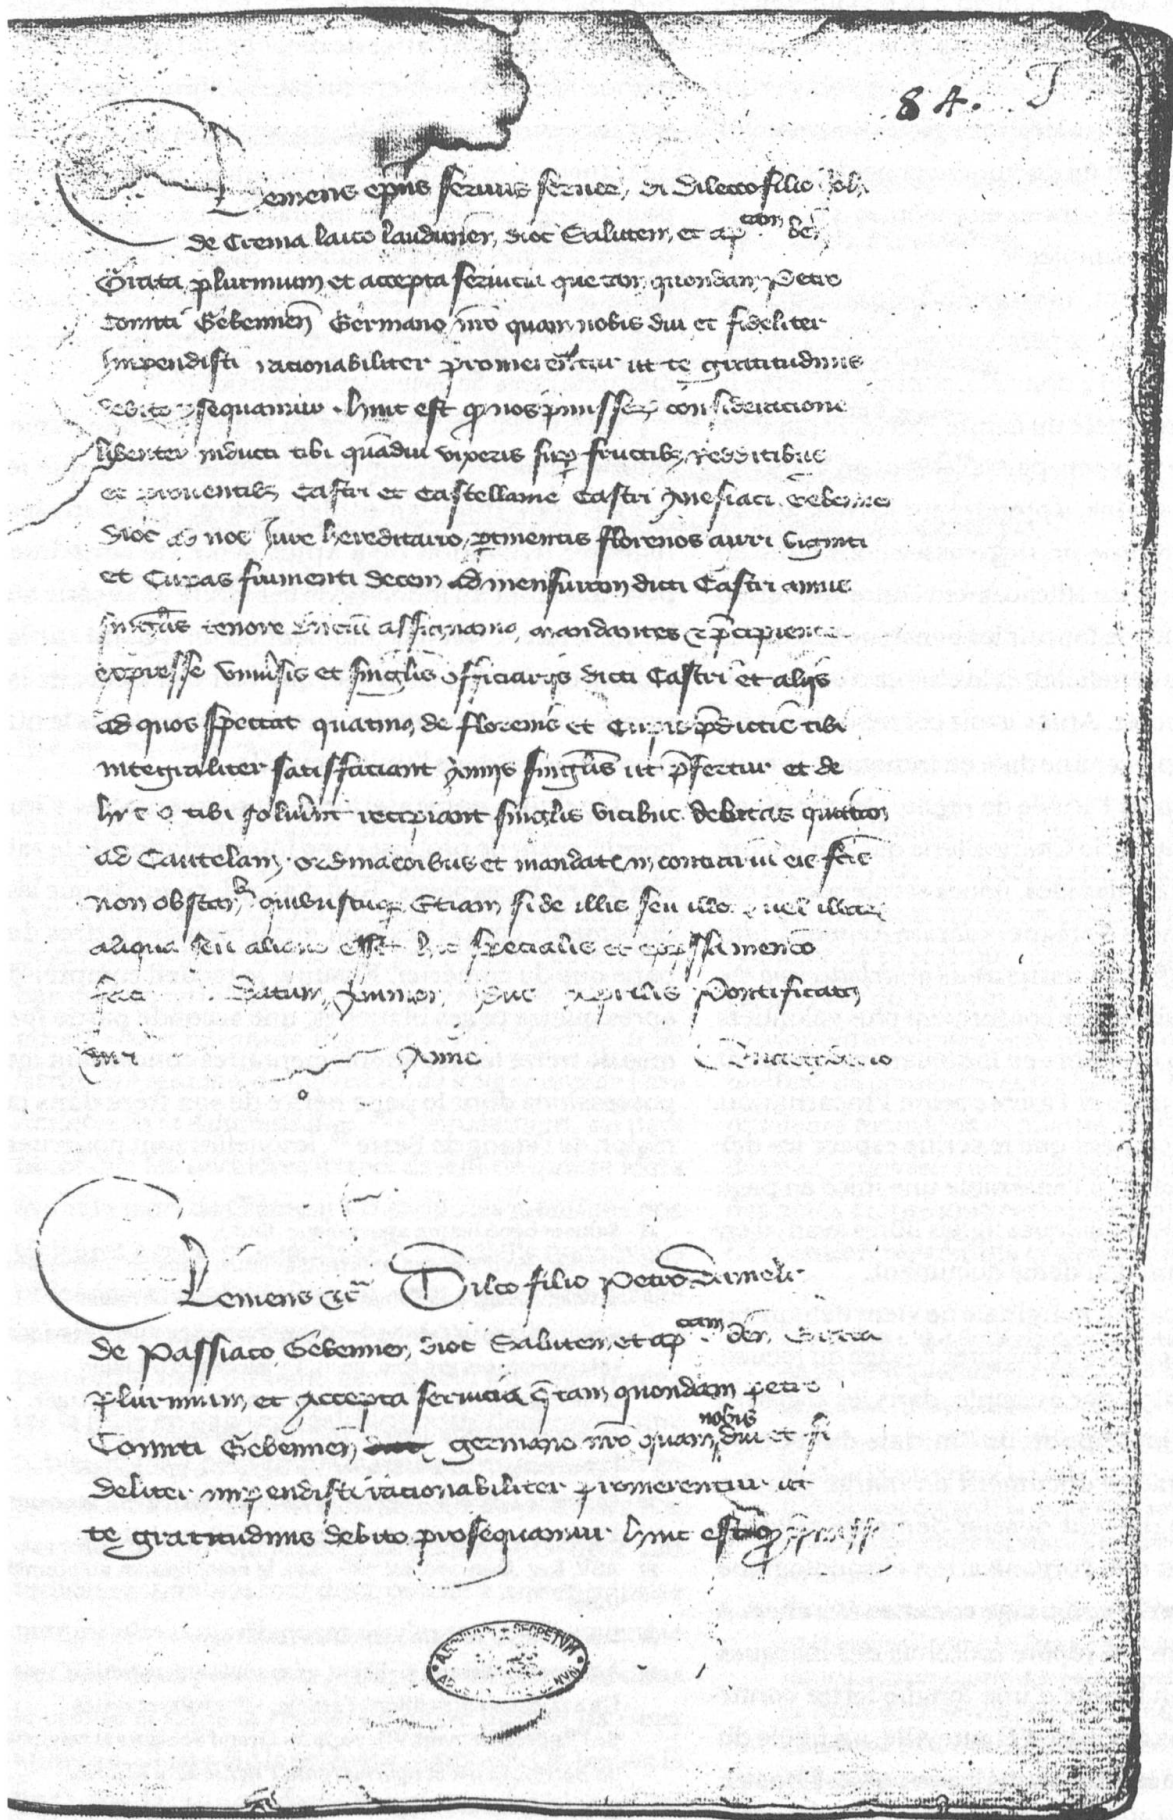 84.
Clemens epus servus servor dei Dilecto filio Joh
de Crema laico laudunen dioc Salutem et apcam ben
Grata plurimum et accepta servicia que tam quondam Petro
Comiti Gebennen Germano nro quam nobis diu et fideliter
impendisti racionabiliter promerentur ut te gratitudinis
debito psequamur hinc est q nos pmissor consideracione
libenter inducti tibi quadiu vixeris sup fructib redditibus
et proventib Castri et Castellanie Castri Gebennen
dioc ad nos Jure hereditario ptinentis florenos auri viginti
et Cupas frumenti decem ad mensuram dicti Castri annis
singlis tenore pntium assignamus mandantes et pcipientes
expresse universis et singlis officiariis dicti Castri et aliis
ad quos spectat quatinus de florenis et Cupis pdictis tibi
integraliter satisfaciant annis singlis ut pfertur et de
hiis q tibi solverint recipiant singlis vicibus debitas quitacon
ad Cautelam ordinacoibus et mandatis in contrarium eis fcis
non obstan quibuscuq Etiam si de illis seu illo vel illar
aliqua seu aliquo esset hic specialis et expssa mencio
fac Datum Avinion Aprilis Pontificatus
nri Anno
Clemens etc Dilco filio Petro
de Passiaco Gebennen dioc Salutem et apcam ben Grata
plurimum et accepta servicia q tam quondam Petro
Comiti Gebennen germano nro quam nobis diu et fi
deliter impendisti racionabiliter promerentur ut
te gratitudinis debito prosequamur hinc est q